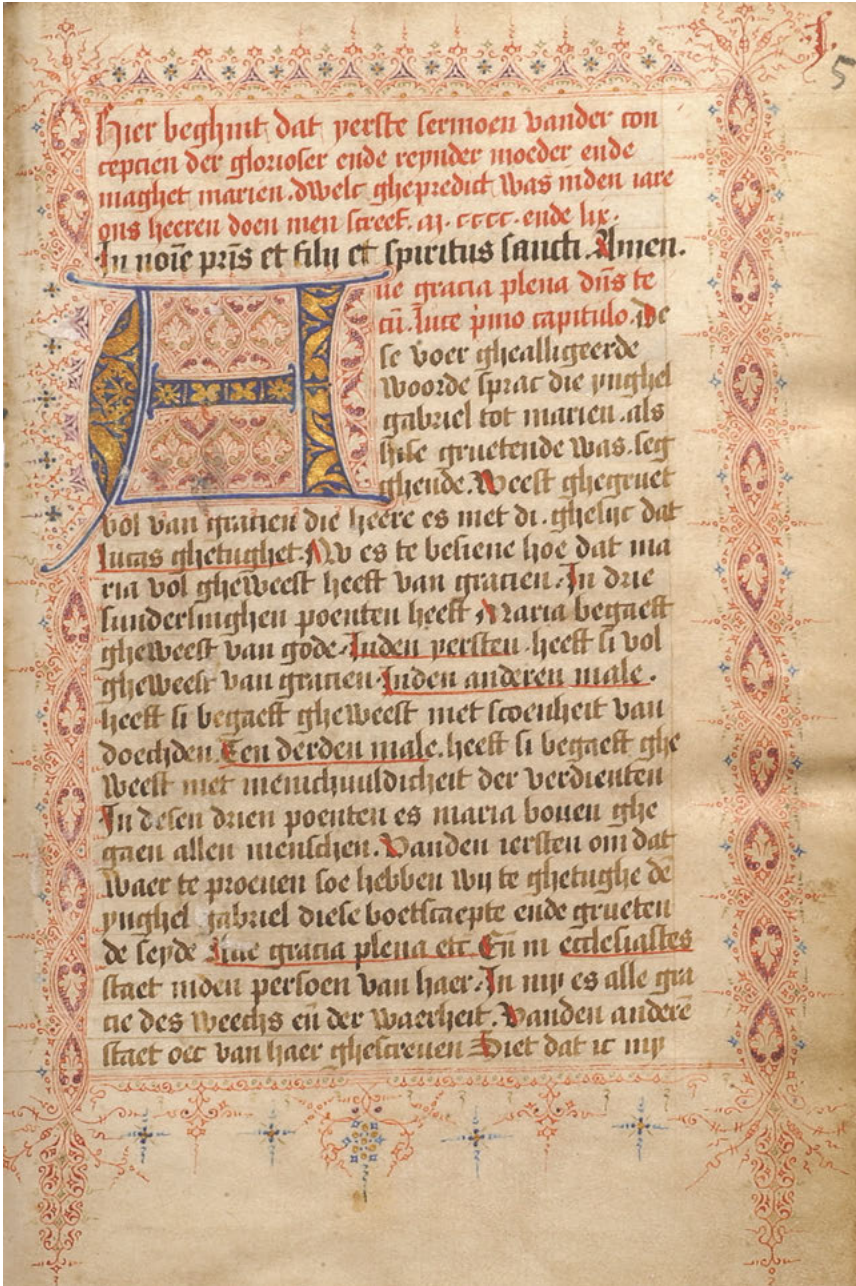 I.
5
Hier beghint dat yerste sermoen vander con
cepcien der glorioser ende reynder moeder ende
maghet marien. dwelc ghepredict was inden iare
ons heeren doen men screef. m. cccc. ende lix.
In noīe pr̄is et filij et spiritus sancti. Amen.
Aue gracia plena dn̄s te
cū. luce p̄mo capitulo. De
se voer ghealligeerde
woorde sprac die ynghel
gabriel tot marien. als
hise gruetende was. seg
ghende. Weest ghegruet
vol van gracien die heere es met di. ghelijc dat
lucas ghetughet. Nv es te besiene hoe dat ma
ria vol gheweest heeft van gracien. In drie
sunderlinghen poenten heeft Maria begaeft
gheweest van gode. Inden yersten. heeft si vol
gheweest van gracien. Inden anderen male.
heeft si begaeft gheweest met scoenheit van
doechden. Ten derden male. heeft si begaeft ghe
weest met menichuuldicheit der verdienten
In desen drien poenten es maria bouen ghe
gaen allen menschen. Vanden iersten om dat
waer te proeuen soe hebben wij te ghetughe dē
ynghel gabriel diese boetscaepte ende grueten
de seyde Aue gracia plena etc. En̄ in ecclesiastes
staet inden persoen van haer. In mij es alle gra
cie des weechs en̄ der waerheit. Vanden anderē
staet oec van haer ghescreuen Siet dat ic mij